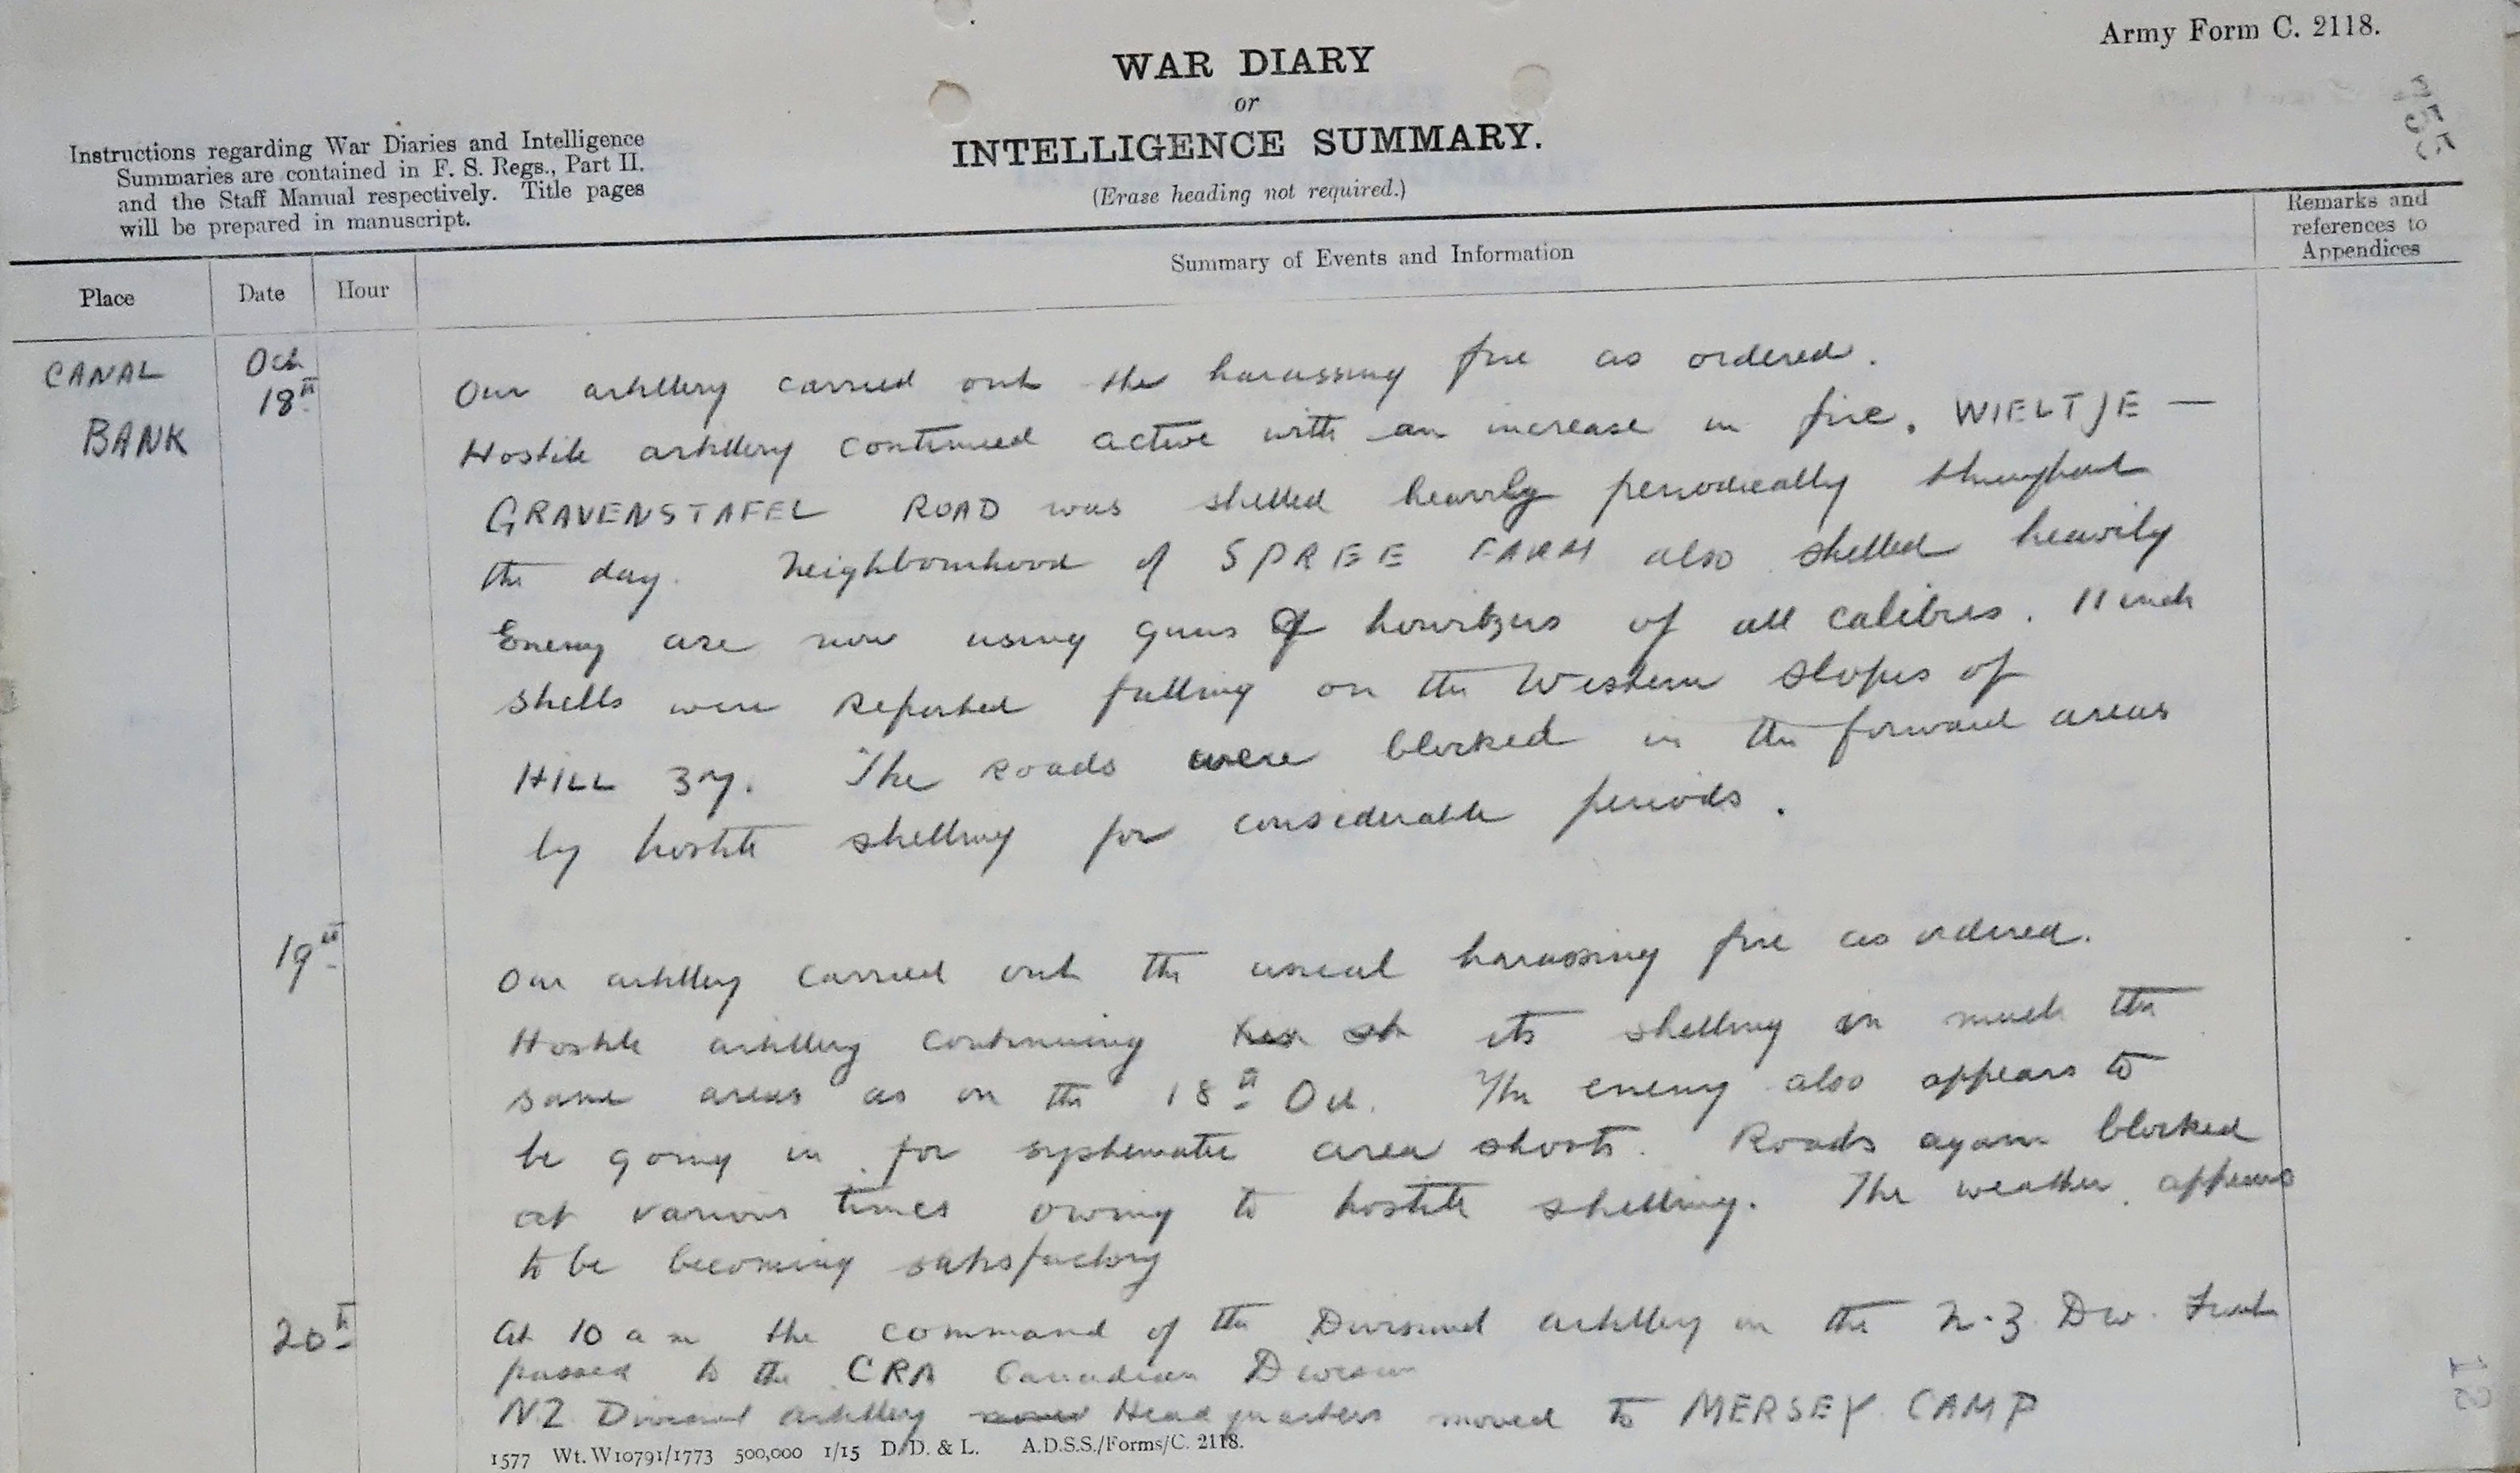 Army Form C. 2118.
WAR DIARY
or
INTELLIGENCE SUMMARY.
(Erase heading not required.)
Instructions regarding War Diaries and Intelligence
Summaries are contained in F. S. Regs., Part II.
and the Staff Manual respectively. Title pages
will be prepared in manuscript.
Place
Date
Hour
Summary of Events and Information
Remarks and
references to
Appendices
CANAL
BANK
Oct
18th
Our artillery carried out the harassing fire as ordered.
Hostile artillery continued active with an increase in fire. WIELTJE —
GRAVENSTAFEL ROAD was shelled heavily periodically throughout
the day. Neighbourhood of SPREE FARM also shelled heavily
Enemy are now using guns & howitzers of all calibres. 11 inch
shells were reported falling on the Western slopes of
HILL 37. The roads were blocked in the forward areas
by hostile shelling for considerable periods.
19th
Our artillery carried out the usual harassing fire as ordered.
Hostile artillery continuing its shelling in much the
same areas as on the 18th Oct. The enemy also appears to
be going in for systematic area shoots. Roads again blocked
at various times owing to hostile shelling. The weather appears
to be becoming satisfactory
20th
At 10 a m the command of the Divisional artillery in the N.Z. Div. Front
passed to the CRA Canadian Division
NZ Divisional Artillery Headquarters moved to MERSEY CAMP
1577 Wt. W10791/1773 500,000 1/15 D. D. & L. A.D.S.S./Forms/C. 2118.